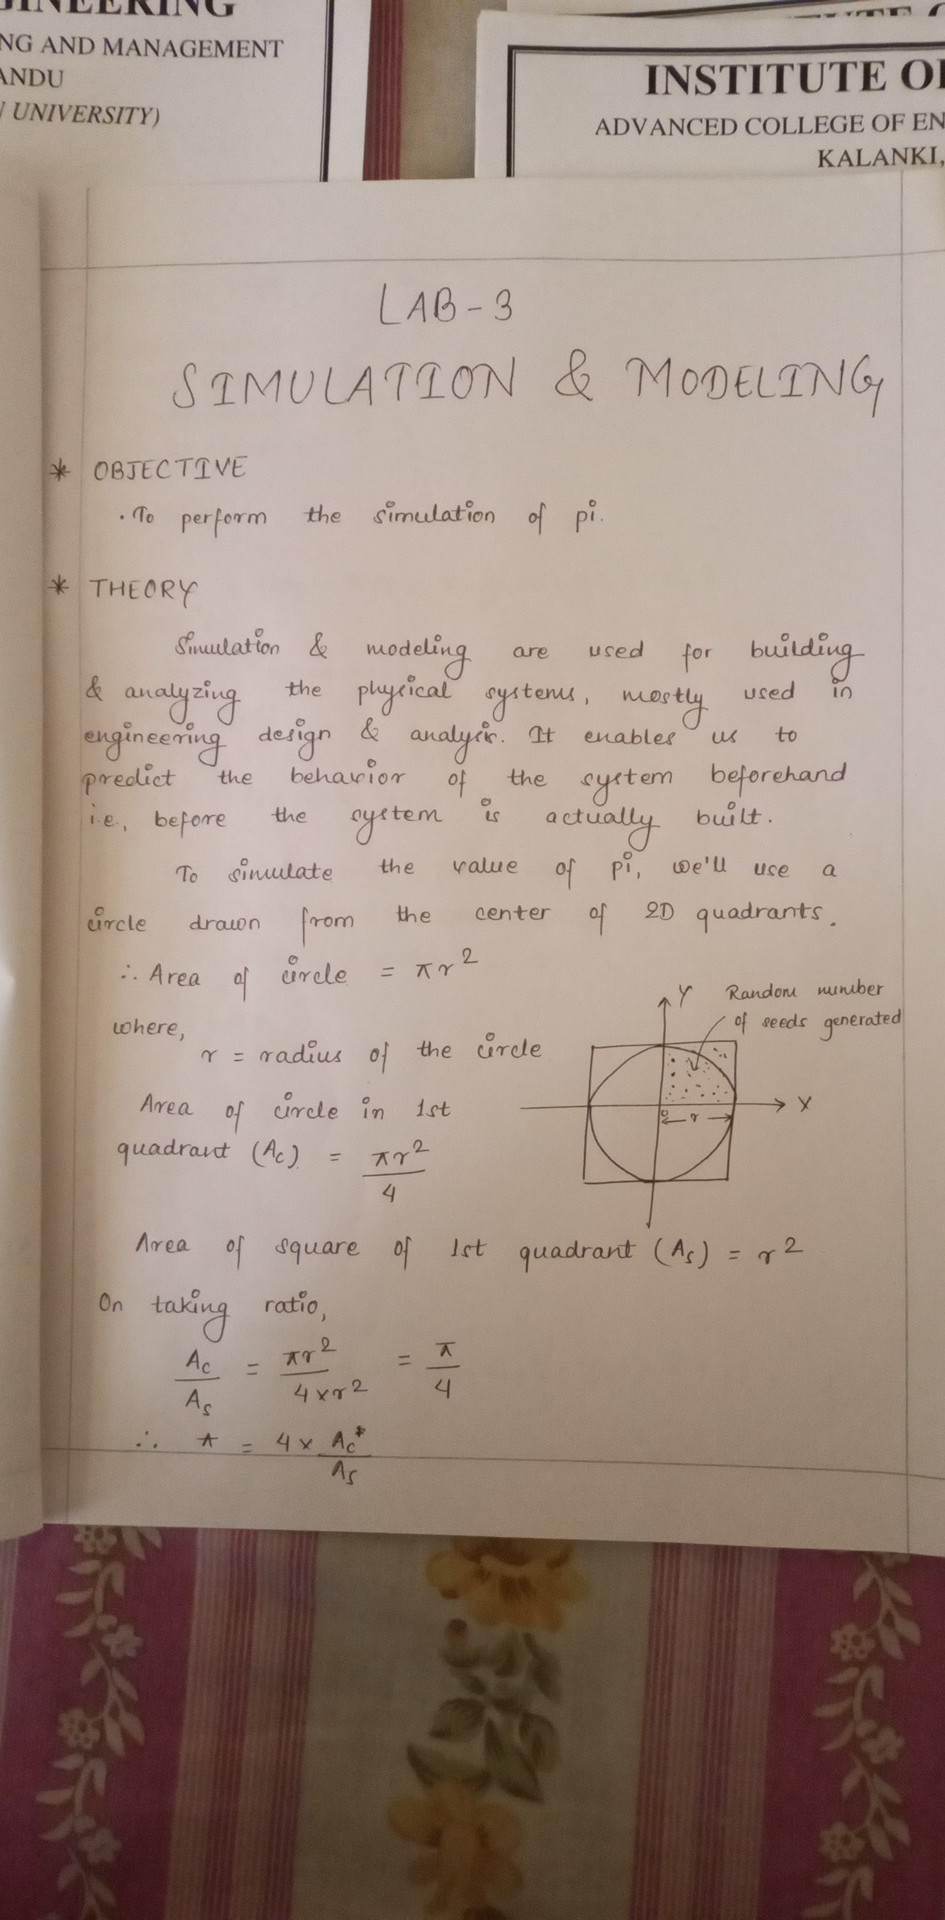 NG AND MANAGEMENT
ANDU
UNIVERSITY)
INSTITUTE O
ADVANCED COLLEGE OF EN
KALANKI,
LAB-3
SIMULATION & MODELING
* OBJECTIVE
· To perform the simulation of pi.
* THEORY
Simulation & modeling are used for building
& analyzing the physical systems, mostly used in
engineering design & analysis. It enables us to
predict the behavior of the system beforehand
i.e., before the system is actually built.
To simulate the value of pi, we'll use a
circle drawn from the center of 2D quadrants.
∴ Area of circle = πr²
where,
r = radius of the circle
Y Random number
of seeds generated
X
r
Area of circle in 1st
quadrant (Ac) = πr²/4
Area of square of 1st quadrant (As) = r²
On taking ratio,
Ac/As = πr²/4×r² = π/4
∴ π = 4 × Ac*/As